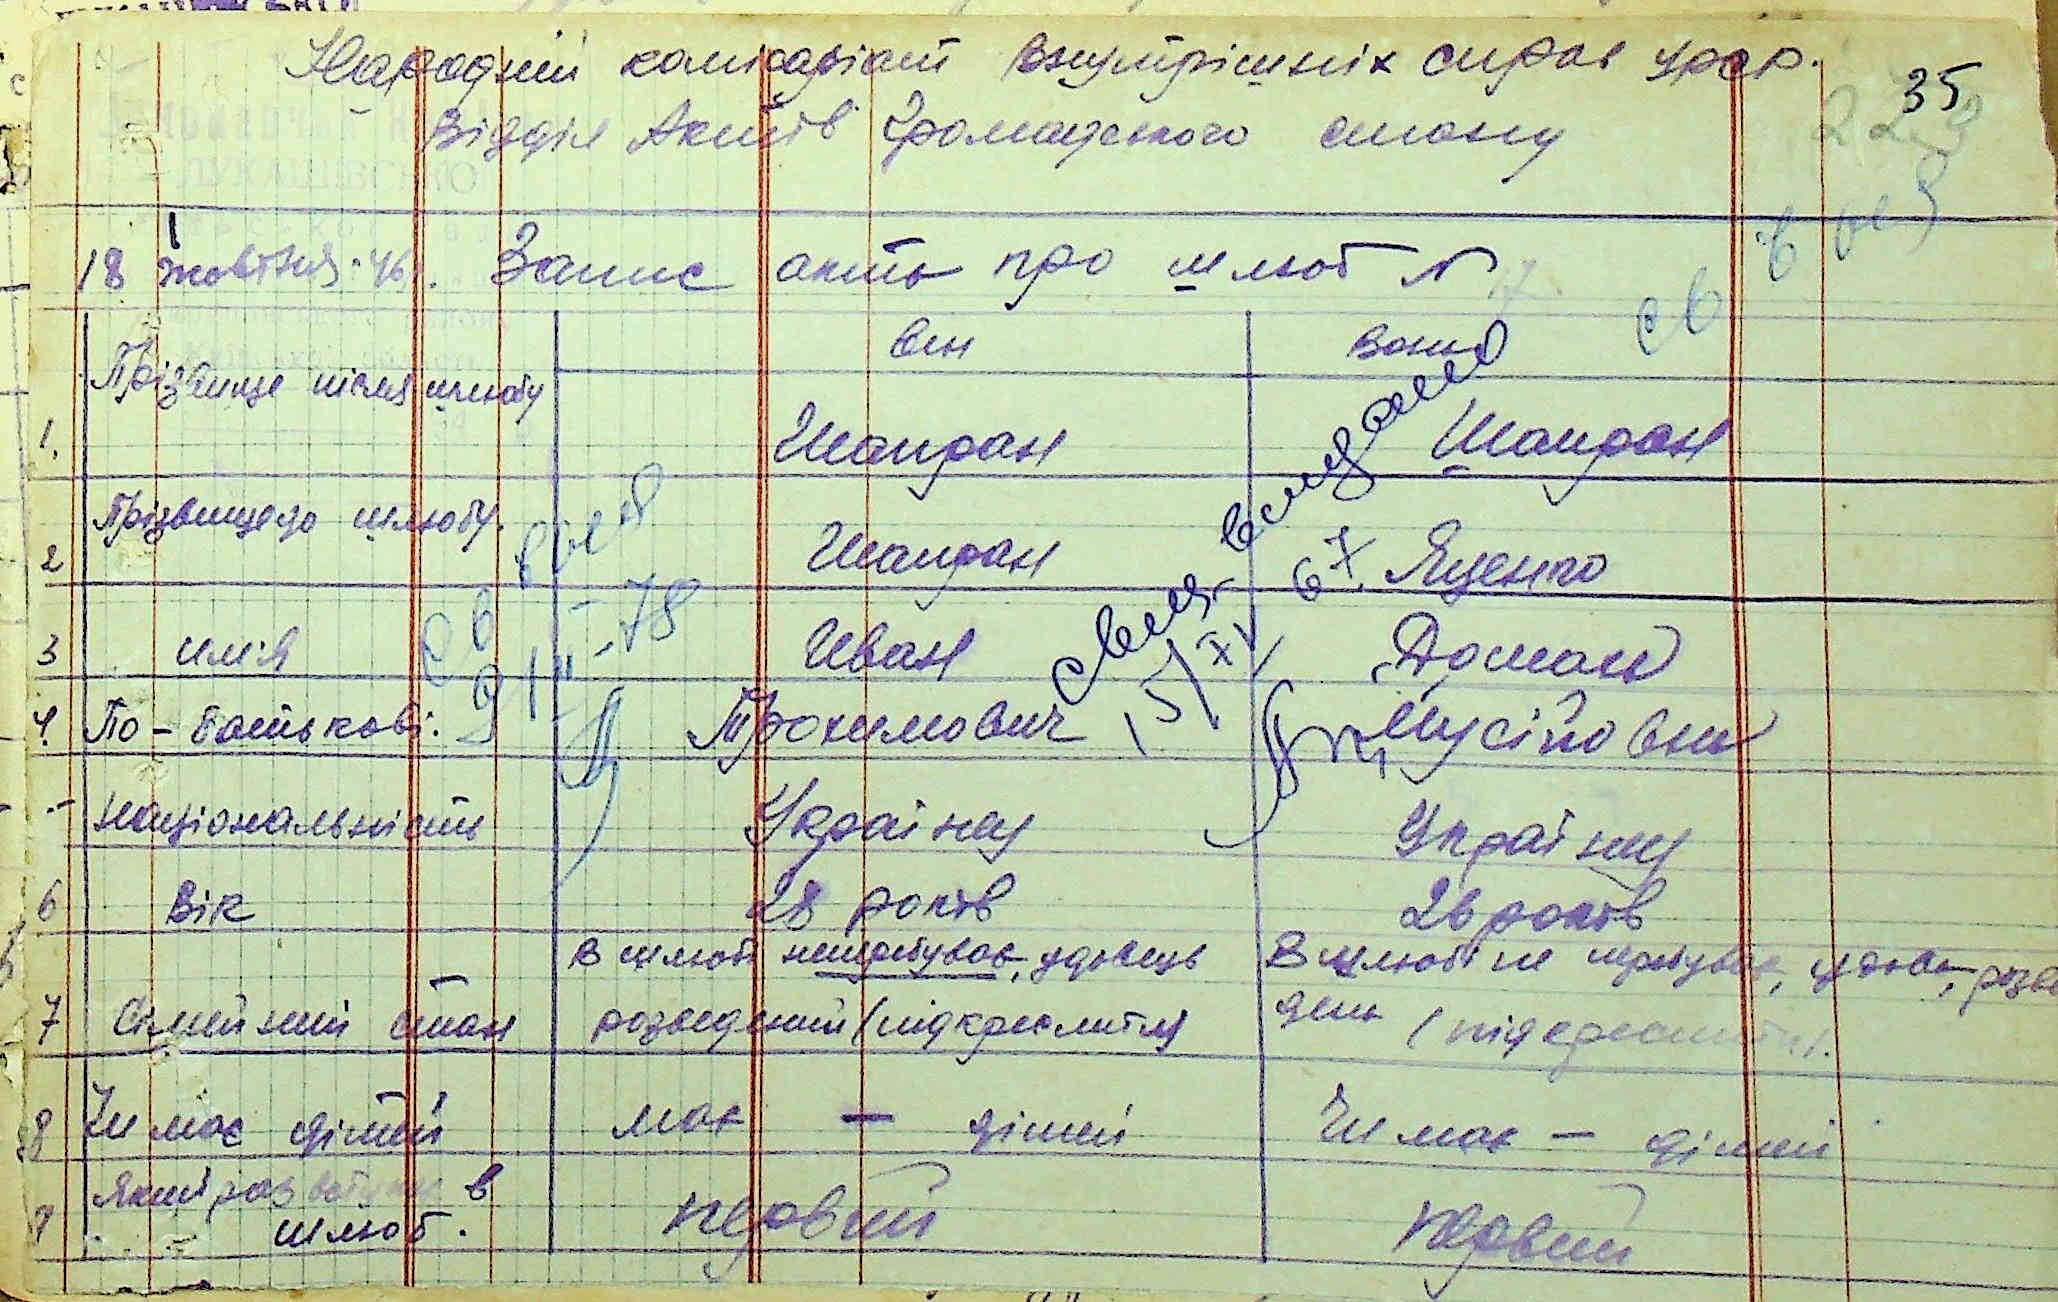 Народній комісаріат внутрішніх справ УРСР.
35
Відділ Актів Громадського стану
18 жовтня 46. Запис актів про шлюб №
він вона
1. Прізвище після шлюбу Шапран Шапран
2 Прізвище до шлюбу. Шапран Яценко
3 имія Иван Домаха
4. По-батькові. Трохимович Мусіївна
Національність Українец Українц
6 Вік 28 років 26 років
7 Сімейний стан В шлюбі неперебував, удовець В шлюбі не перебував, удова, розве
розведений (підкреслити) дена (підкреслити).
8 Чи має дітей має — дітей Чи має — дітей
9 Який раз вступає в
шлюб. первий первий
св в
св
21 II-78
15/XI 67